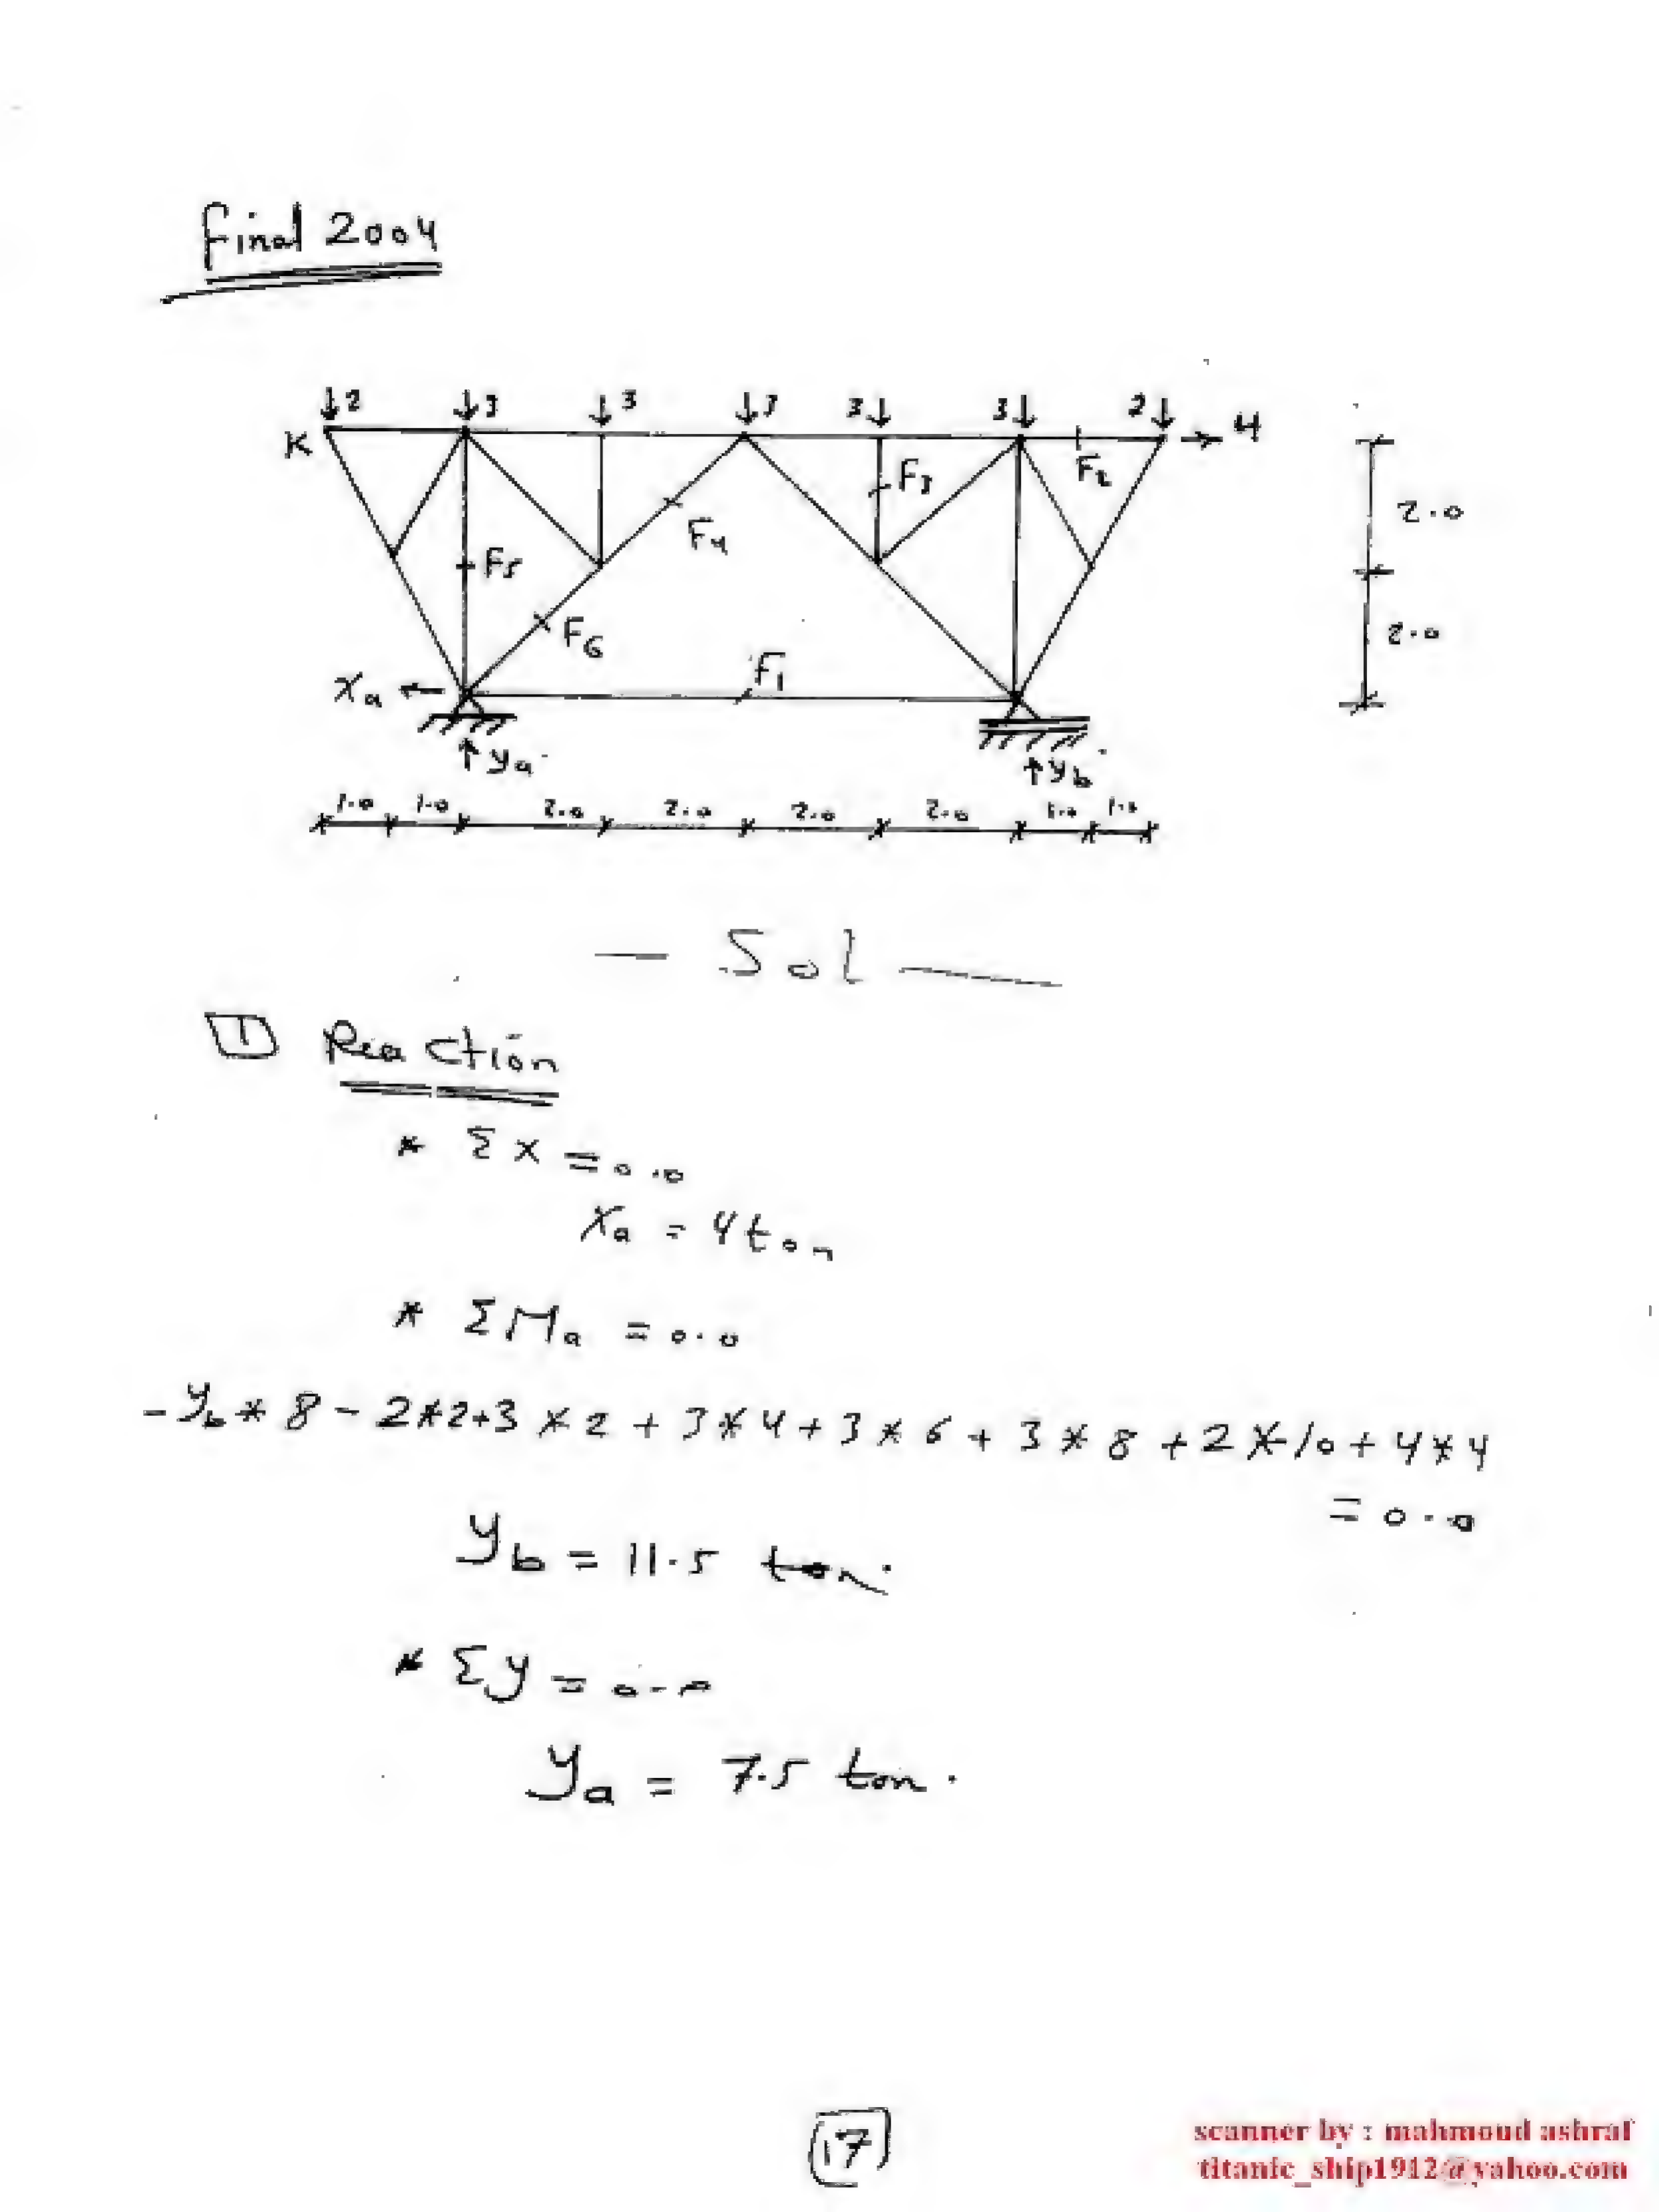 Final 2004
↓2 ↓3 ↓3 ↓3 3↓ 3↓ 2↓ → 4
K
F2
F3
2.0
F4
F5
F6
2.0
F1
Xa ←
↑ya
↑yb
1.0 1.0 2.0 2.0 2.0 2.0 1.0 1.0
— Sol —
1 Reaction
* Σx = 0.0
Xa = 4 ton
* ΣMa = 0.0
-yb * 8 - 2*2+3 * 2 + 3*4 + 3 * 6 + 3 * 8 + 2 * 10 + 4*4
= 0.0
yb = 11.5 ton.
* Σy = 0.0
ya = 7.5 ton.
17
scanner by : mahmoud ashraf
titanic_ship1912@yahoo.com